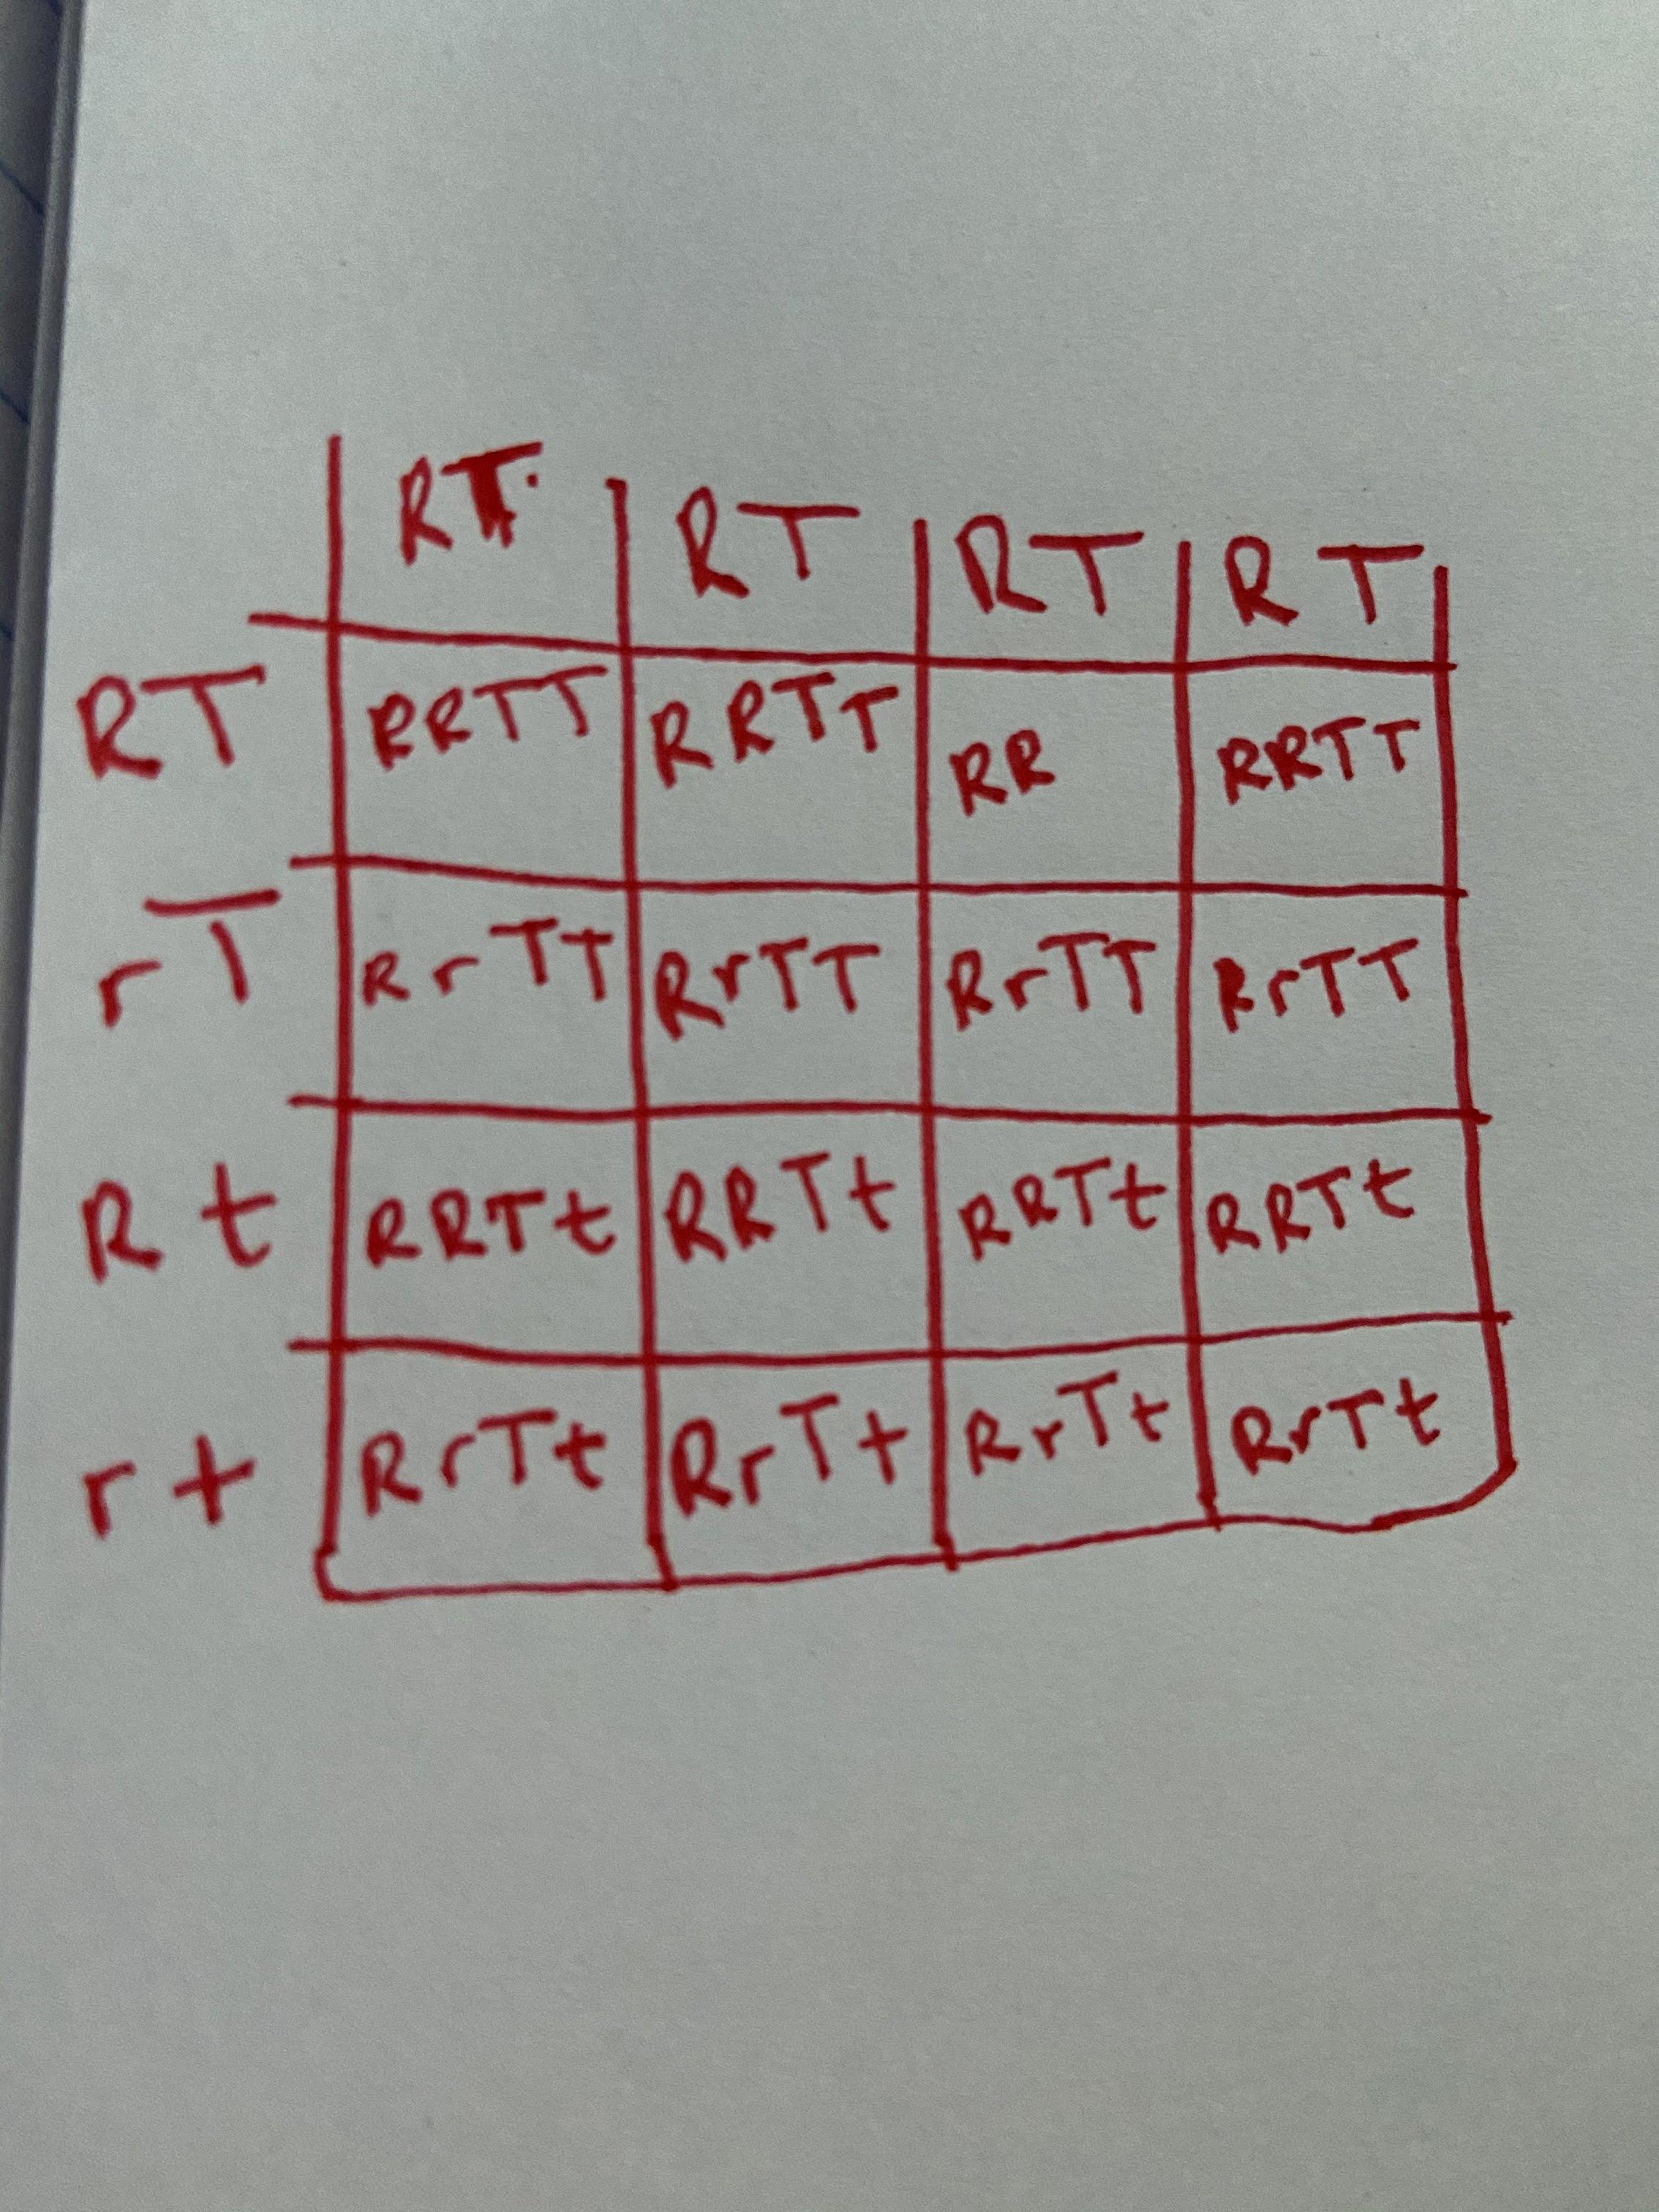 RT RT RT RT
RT RRTT RRTT RR RRTT
rT RrTT RrTT RrTT RrTT
Rt RRTt RRTt RRTt RRTt
rt RrTt RrTt RrTt RrTt